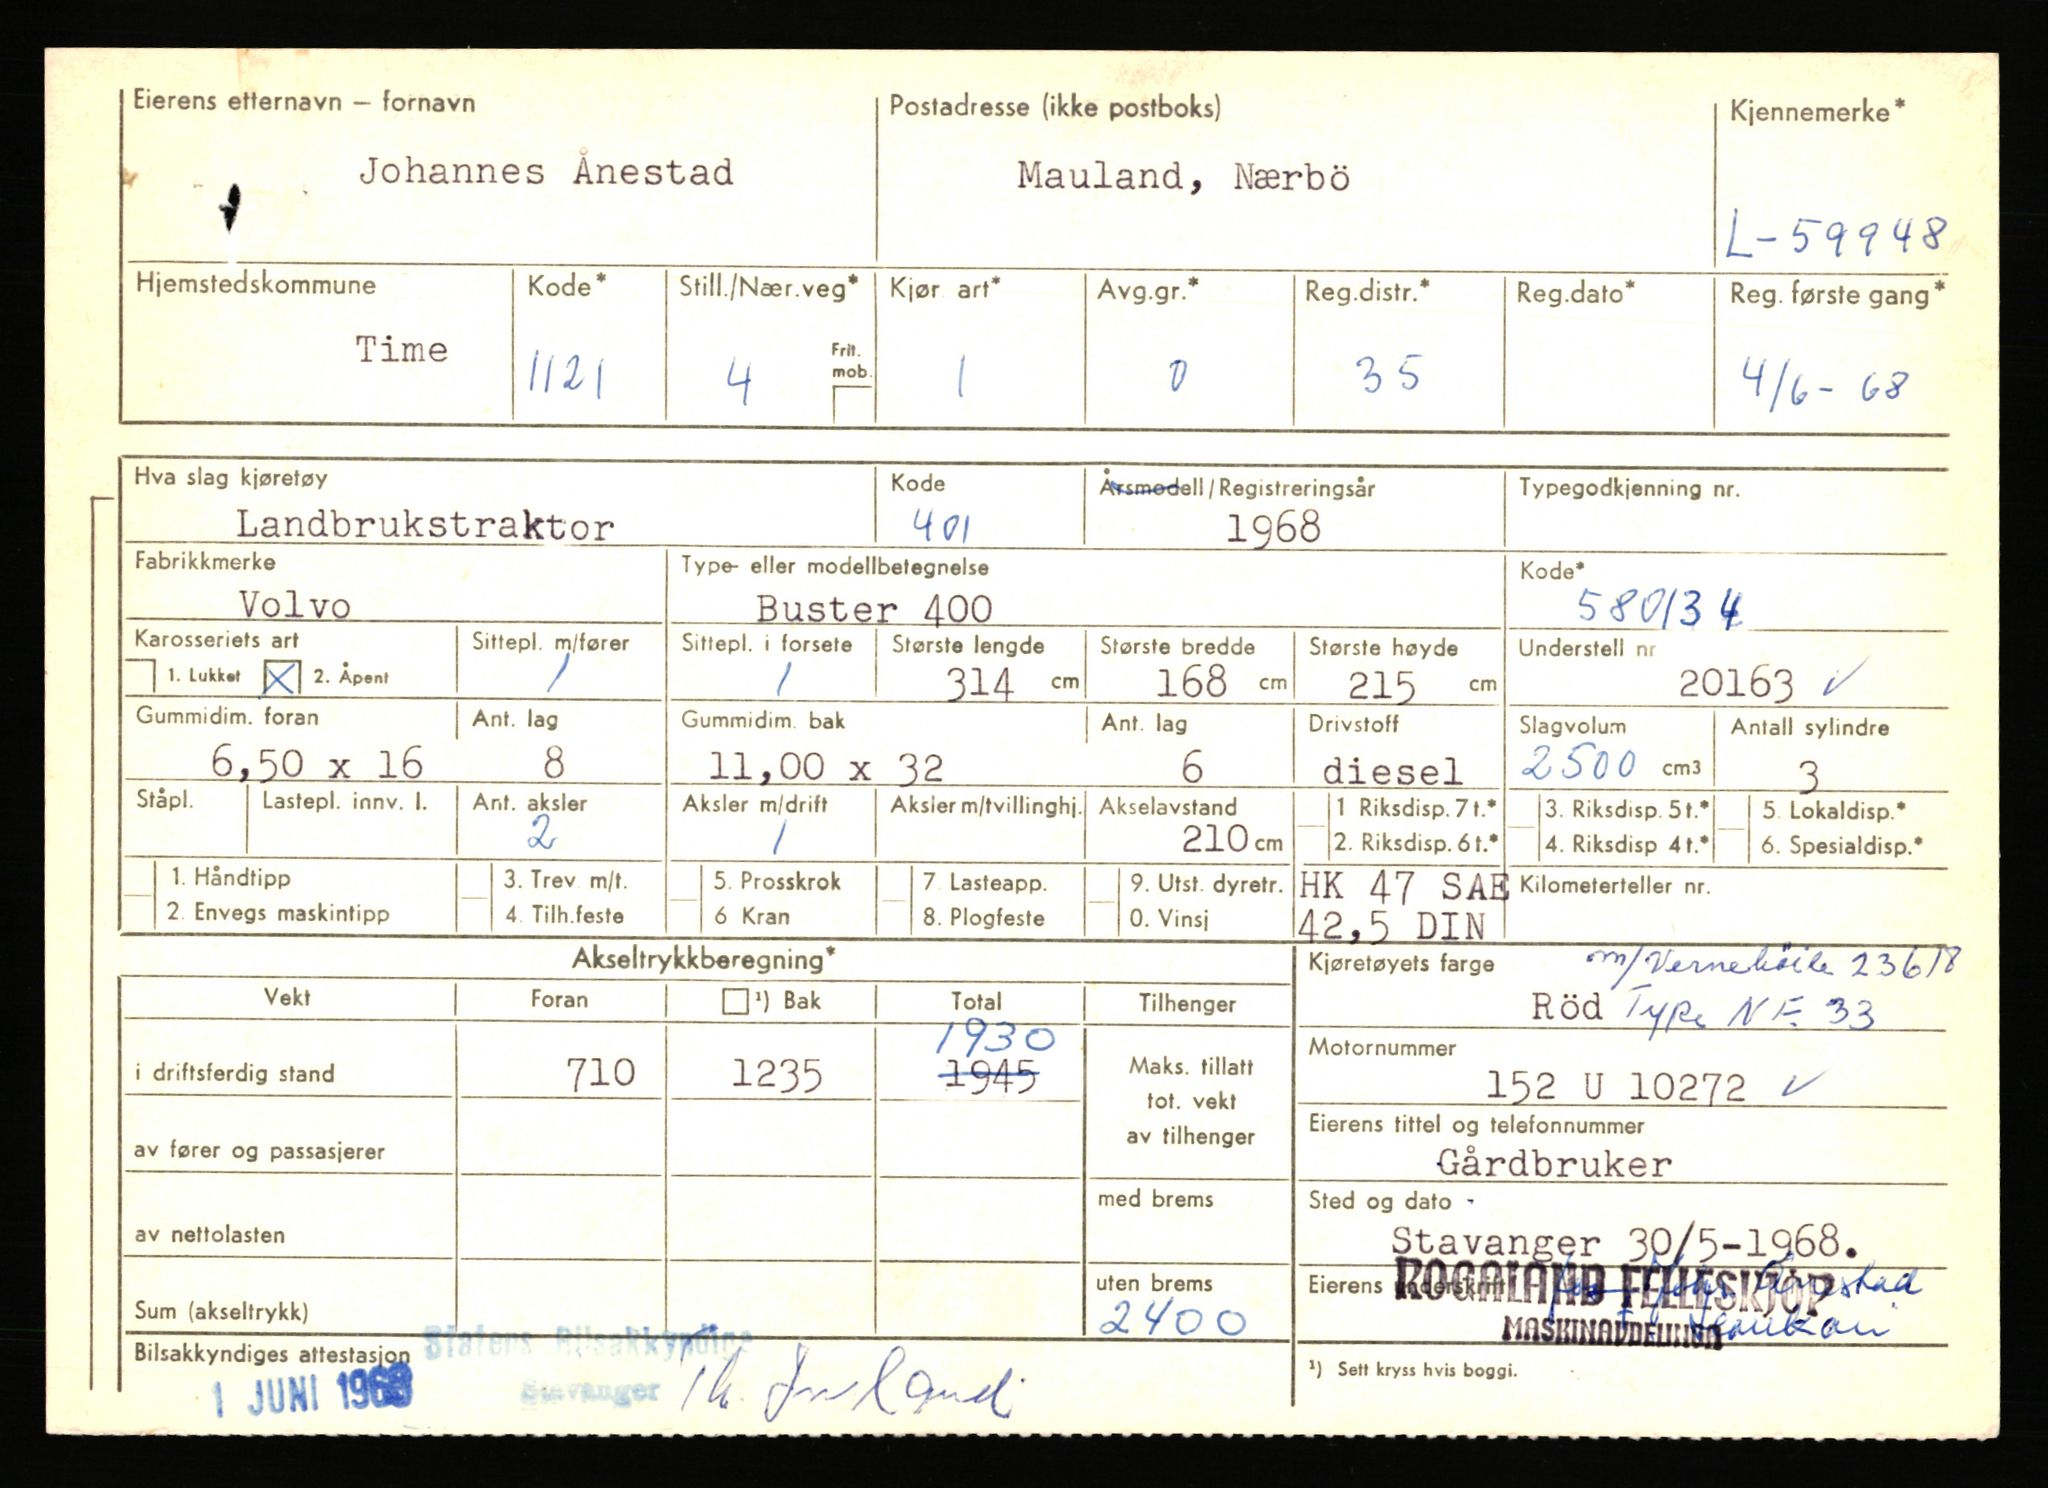 Eierens etternavn – fornavn
Postadresse (ikke postboks)
Kjennemerke*
Johannes Ånestad
Mauland, Nærbö
L-59948
Hjemstedskommune
Kode*
Still./Nær.veg*
Kjør art*
Avg.gr.*
Reg.distr.*
Reg.dato*
Reg. første gang*
Time
1121
4
Frit. mob.
1
0
35
4/6-68
Hva slag kjøretøy
Kode
Årsmodell/Registreringsår
Typegodkjenning nr.
Landbrukstraktor
401
1968
Fabrikkmerke
Type- eller modellbetegnelse
Kode*
Volvo
Buster 400
580134
Karosseriets art
Sittepl. m/fører
Sittepl. i forsete
Største lengde
Største bredde
Største høyde
Understell nr
1. Lukket
2. Åpent
1
1
314 cm
168 cm
215 cm
20163
Gummidim. foran
Ant. lag
Gummidim. bak
Ant. lag
Drivstoff
Slagvolum
Antall sylindre
6,50 x 16
8
11,00 x 32
6
diesel
2500 cm3
3
Ståpl.
Lastepl. innv. l.
Ant. aksler
Aksler m/drift
Aksler m/tvillinghj.
Akselavstand
1 Riksdisp. 7 t.*
3. Riksdisp. 5 t.*
5. Lokaldisp.*
2
1
210 cm
2. Riksdisp. 6 t.*
4. Riksdisp 4 t.*
6. Spesialdisp.*
1. Håndtipp
3. Trev. m/t.
5. Prosskrok
7 Lasteapp.
9. Utst. dyretr.
HK 47 SAE
Kilometerteller nr.
2. Envegs maskintipp
4. Tilh.feste
6 Kran
8. Plogfeste
0. Vinsj
42,5 DIN
Akseltrykkberegning*
Kjøretøyets farge
m/Vernebøile 23618
Vekt
Foran
¹) Bak
Total
Tilhenger
Röd
Type NF. 33
1930
i driftsferdig stand
710
1235
1945
Maks. tillatt
tot. vekt
av tilhenger
Motornummer
152 U 10272
av fører og passasjerer
Eierens tittel og telefonnummer
Gårdbruker
av nettolasten
med brems
Sted og dato
Stavanger 30/5-1968.
Sum (akseltrykk)
uten brems
2400
Eierens underskrift
ROGALAND FELLESKJØP
MASKINAVDELINGA
Bilsakkyndiges attestasjon
Statens Bilsakkyndige
Stavanger
1 JUNI 1968
¹) Sett kryss hvis boggi.